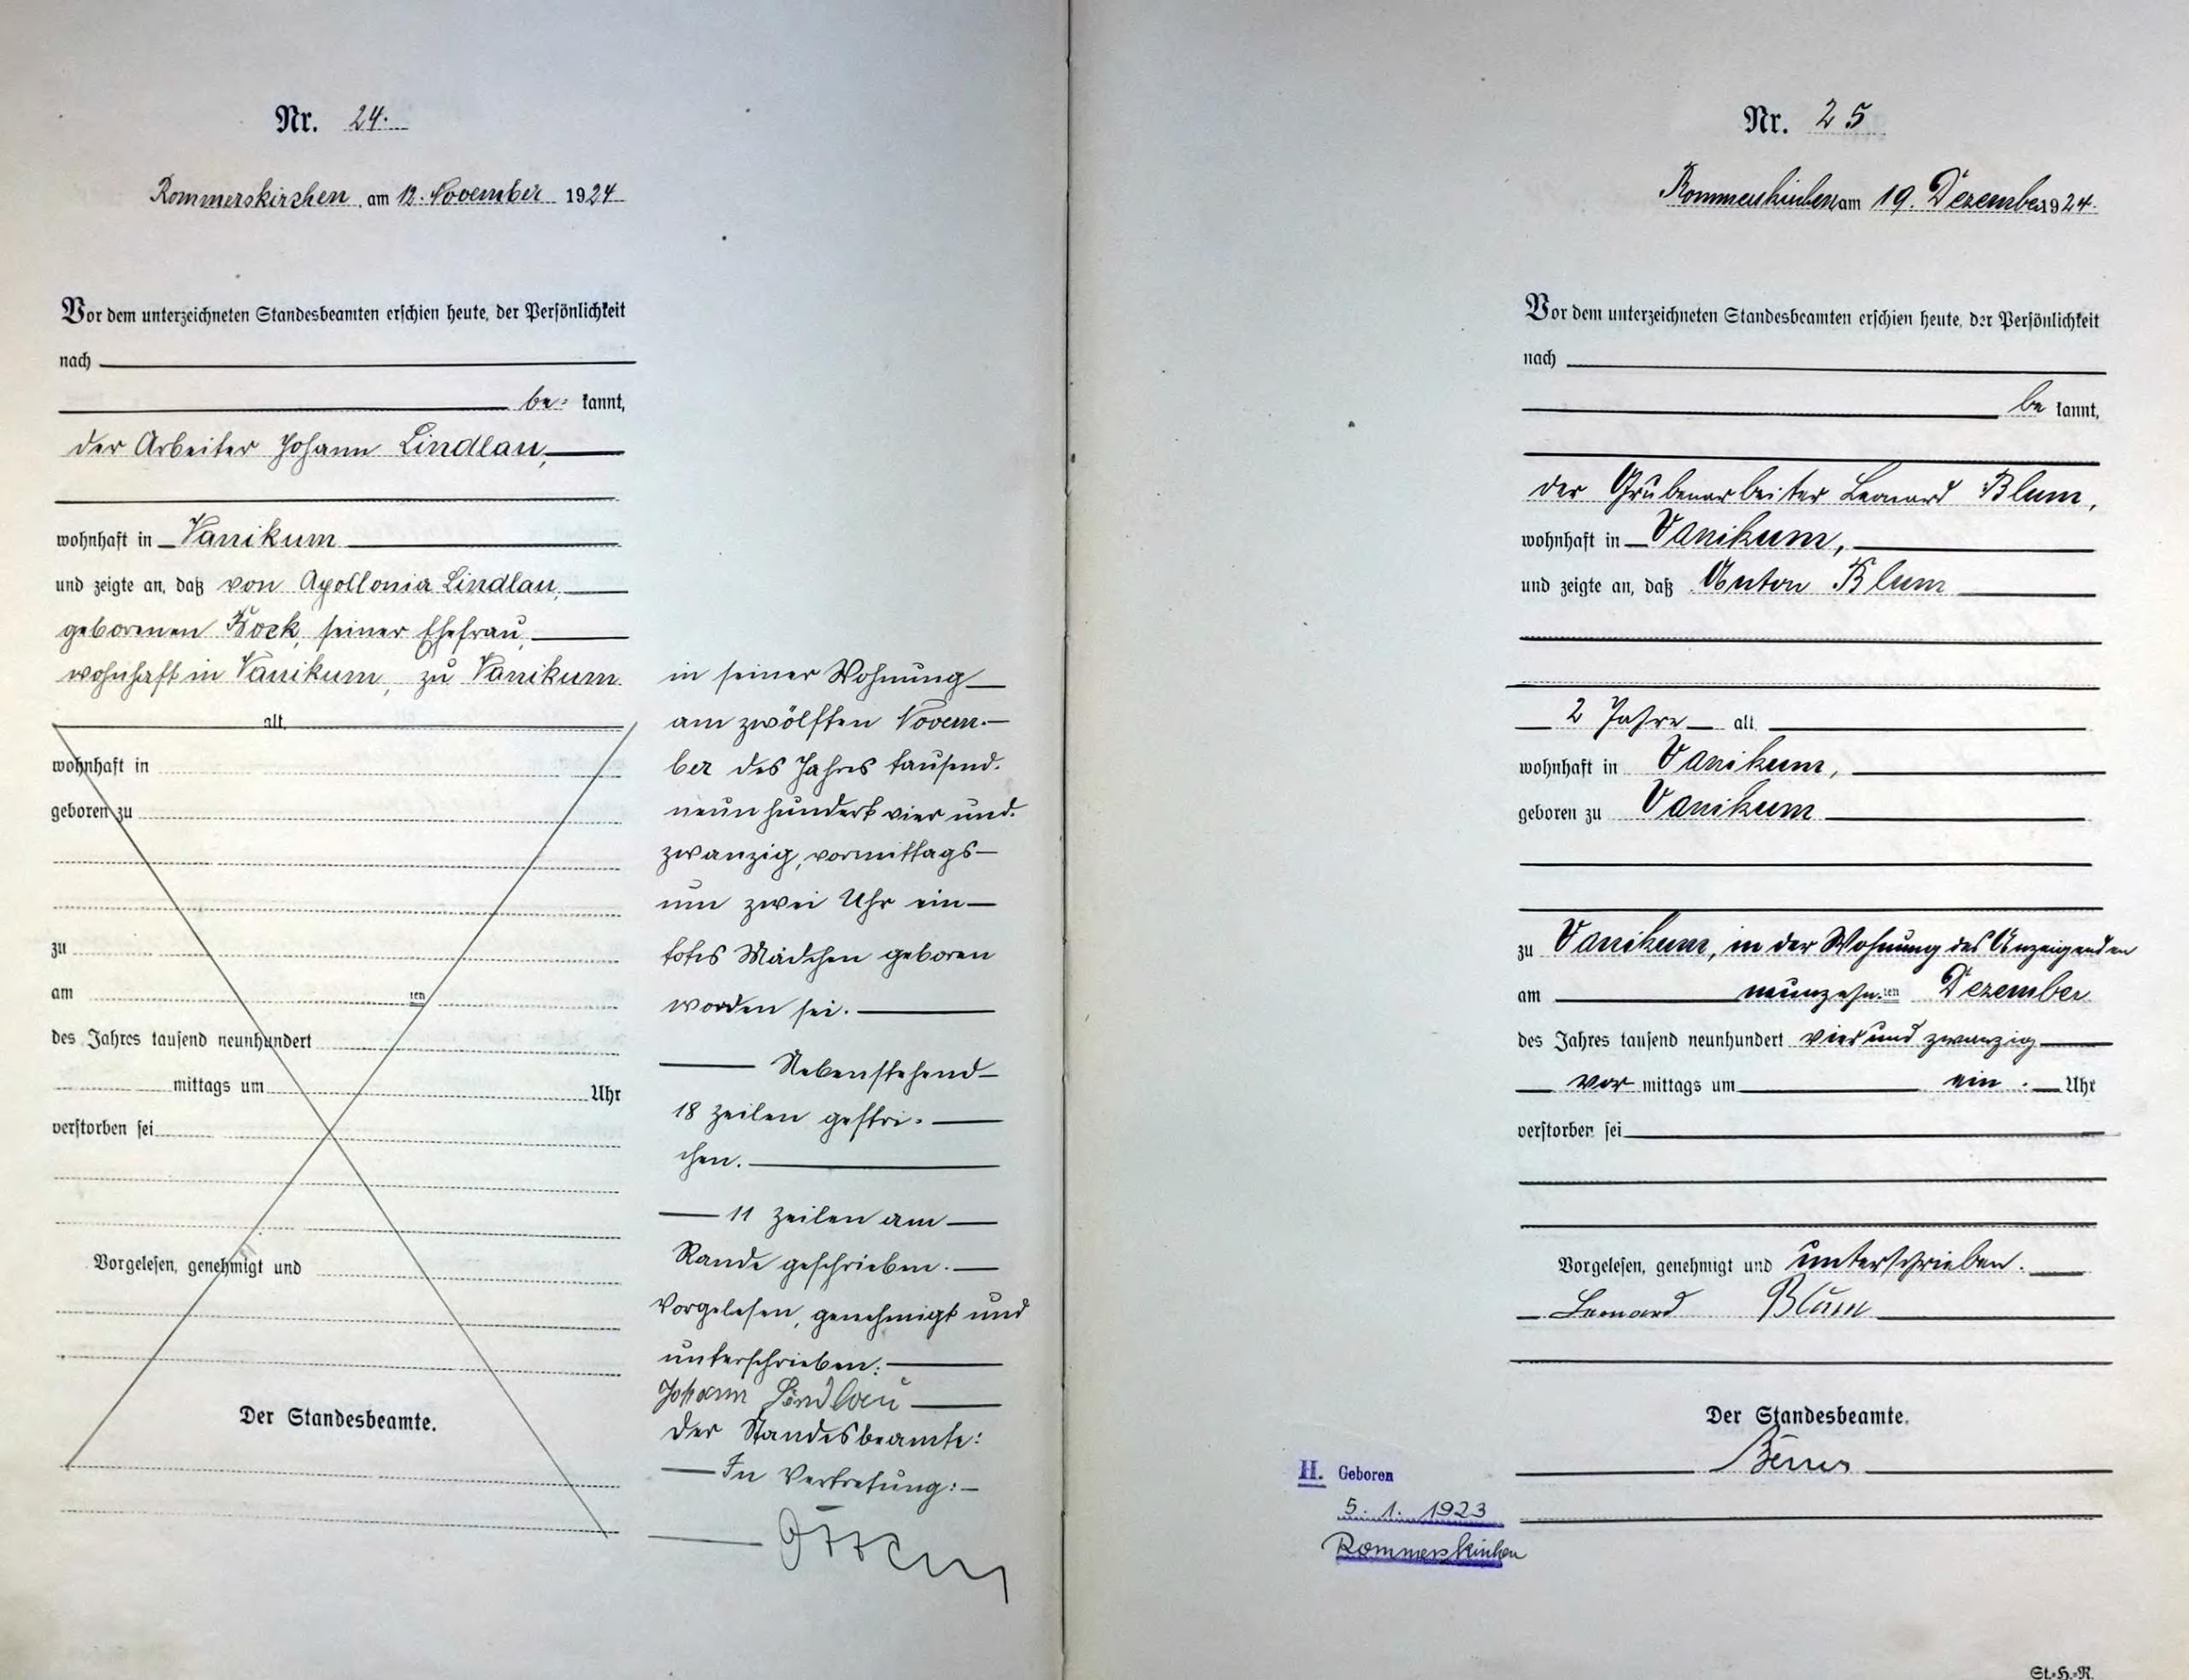 Nr. 24.
Rommerskirchen, am 12. November 1924
Vor dem unterzeichneten Standesbeamten erschien heute, der Persönlichkeit
nach
be= kannt,
der Arbeiter Johann Lindlau,
wohnhaft in Vanikum
und zeigte an, daß von Apollonia Lindlau,
geborenen Bock, seiner Ehefrau,
wohnhaft in Vanikum, zu Vanikum
alt,
wohnhaft in
geboren zu
zu
am ten
des Jahres tausend neunhundert
mittags um Uhr
verstorben sei
Vorgelesen, genehmigt und
Der Standesbeamte.
in seiner Wohnung
am zwölften Novem-
ber des Jahres tausend.
neunhundert vier und.
zwanzig, vormittags
um zwei Uhr ein
totes Mädchen geboren
worden sei.
Nebenstehend
18 Zeilen gestri-
chen.
11 Zeilen am
Rande geschrieben.
Vorgelesen, genehmigt und
unterschrieben:
Johann Lindlau
Der Standesbeamte:
In Vertretung:
Nr. 25
Rommerskirchen am 19. Dezember 1924.
Vor dem unterzeichneten Standesbeamten erschien heute, der Persönlichkeit
nach
be kannt,
der Grubenarbeiter Leonard Blum,
wohnhaft in Vanikum,
und zeigte an, daß Anton Blum
2 Jahre alt
wohnhaft in Vanikum,
geboren zu Vanikum
zu Vanikum, in der Wohnung des Anzeigenden
am neunzehn-ten Dezember
des Jahres tausend neunhundert vier und zwanzig
vor mittags um ein Uhr
verstorben sei
Vorgelesen, genehmigt und unterschrieben.
Leonard Blum
Der Standesbeamte.
H. Geboren
5. 1. 1923
Rommerskirchen
St.=H.=R.